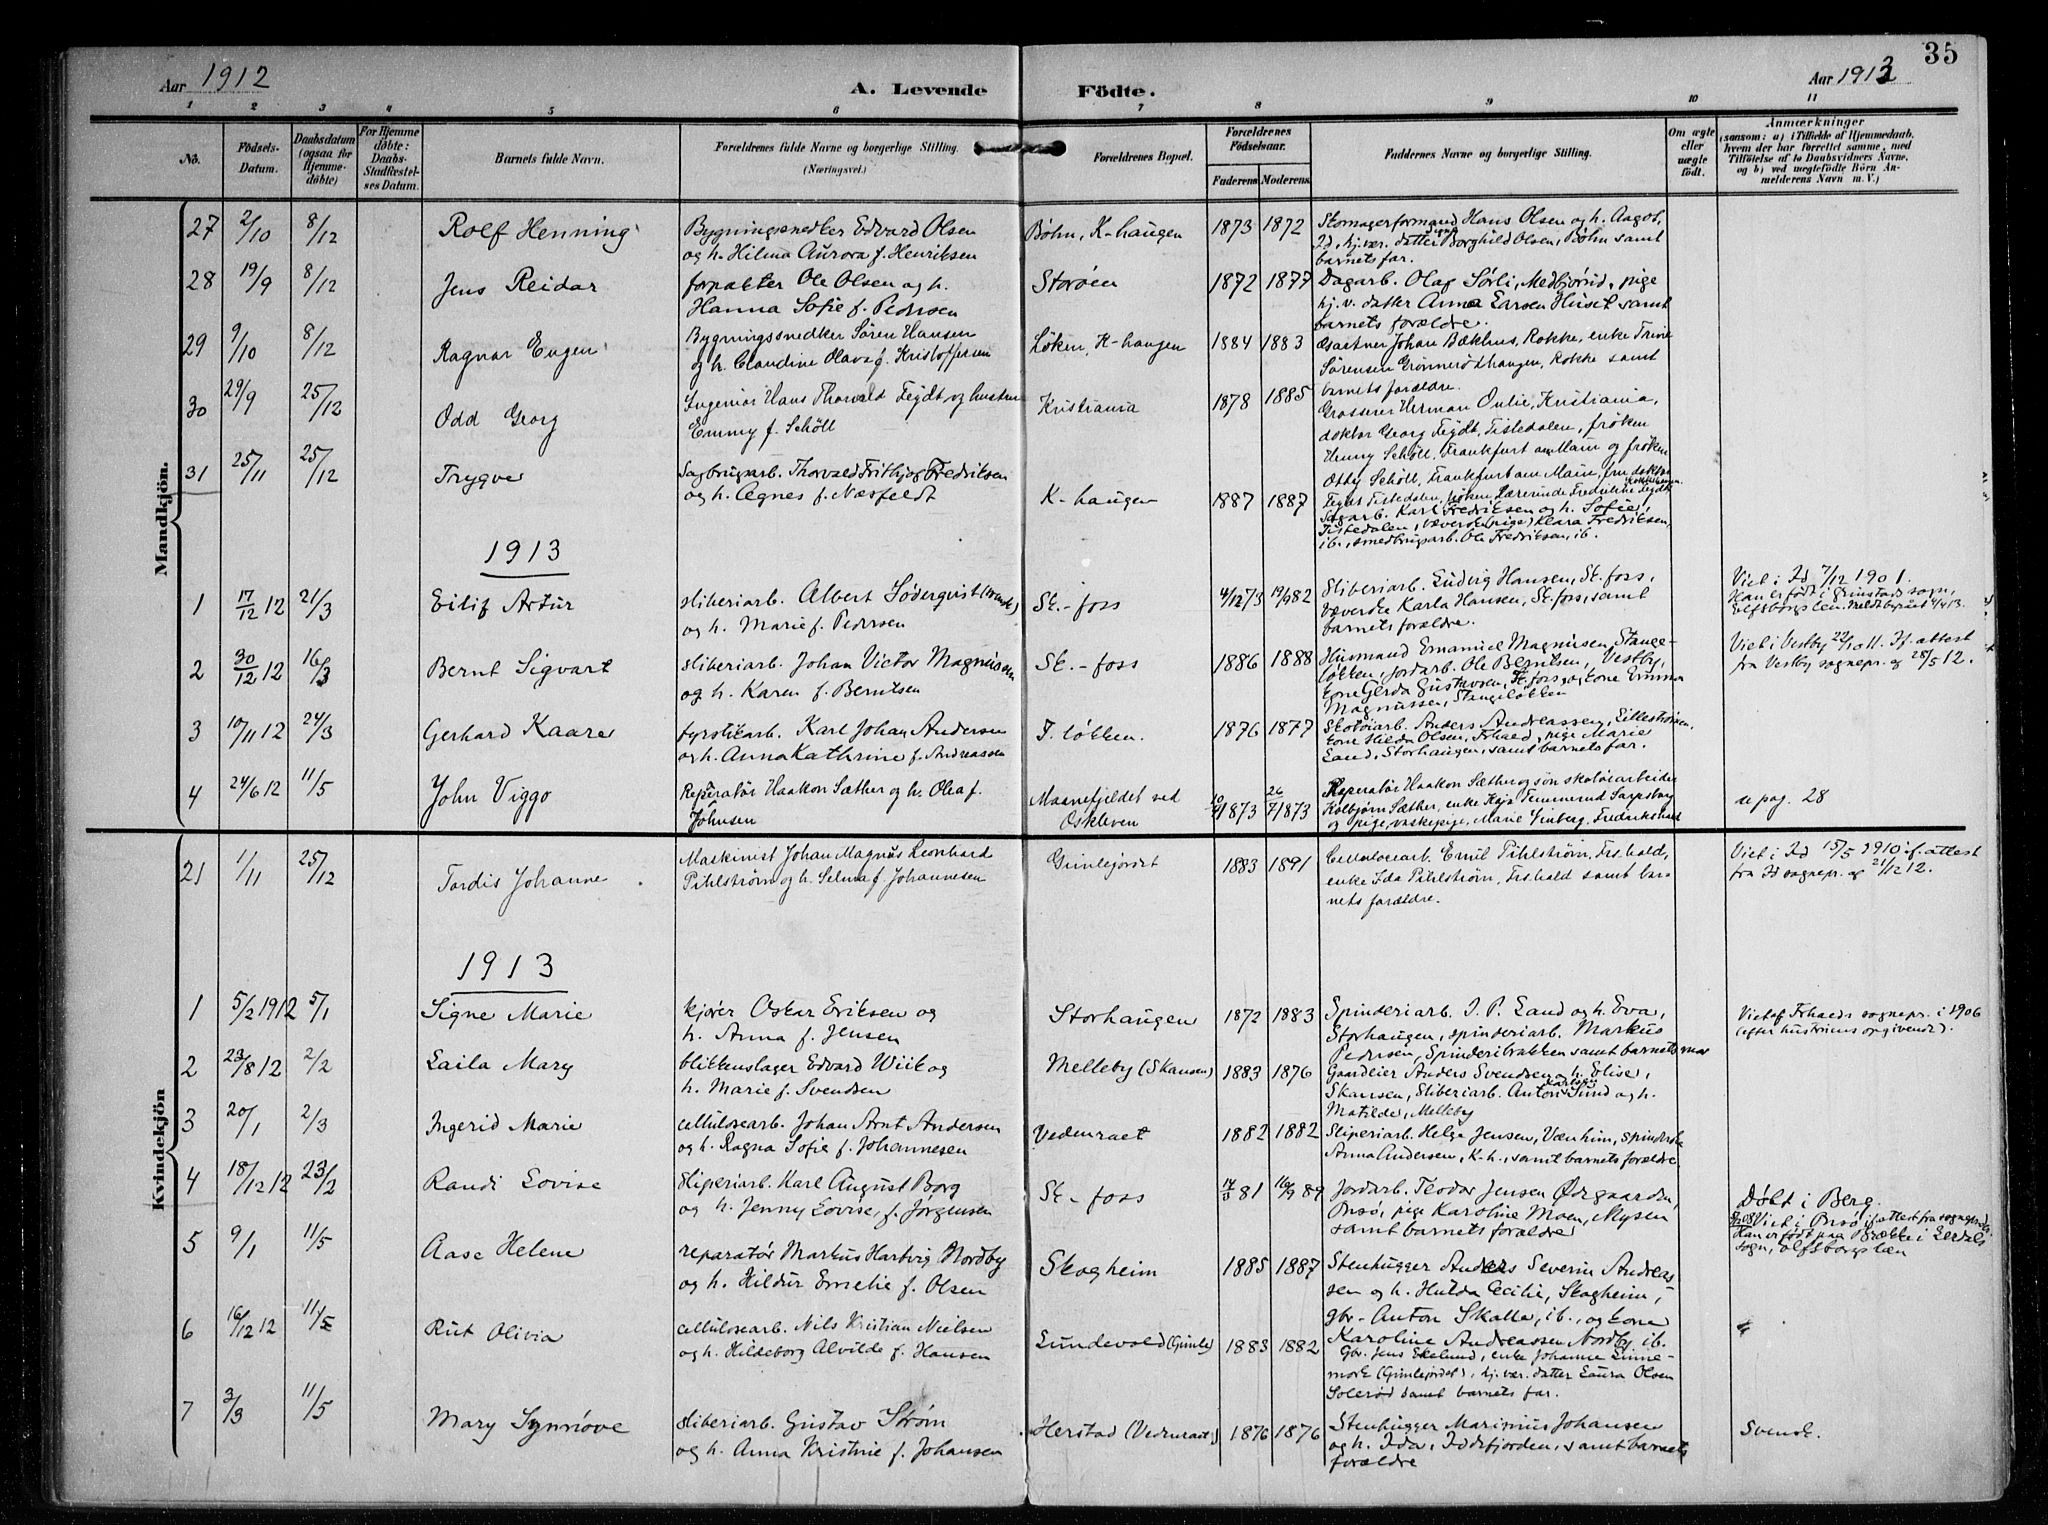 35
Aar 1912
A. Levende
Födte.
Aar 1913
1 2 3 4 5 6 7 8 9 10 11
No.
Födsels-Datum.
Daabsdatum (ogsaa for Hjemme-döbte)
For Hjemme döbte: Daabs-Stadfæstel-ses Datum.
Barnets fulde Navn.
Forældrenes fulde Navne og borgerlige Stilling.
(Næringsvei.)
Forældrenes Bopæl.
Forældrenes Födselsaar.
Faderens Moderens
Faddernes Navne og borgerlige Stilling.
Om ægte eller uægte födt.
Anmærkninger
(saasom: a) i Tilfælde af Hjemmedaab,
hvem der har forrettet samme, med
Tilföielse af to Daabsvidners Navne,
og b) ved uægtefödte Börn An-
melderens Navn m. V.)
Mandkjön.
27 2/10 8/12 Rolf Henning
Bygningssnedker Edvard Olsen
og h. Hilma Aurora f. Henriksen
Bøhn, K-haugen 1873 1872
Skomagerformand Hans Olsen og h. Aagot,
Id, hj.vær. datter Signe Borghild Olsen, Bøhn samt
barnets far.
28 19/9 8/12 Jens Reidar
forpakter Ole Olsen og h.
Hanna Sofie f. Pedersen
Storøen 1872 1877
Dagarb. Olaf Sørli, Medbjørød, pige
hj. v. datter Anna Larsen Huset samt
barnets forældre.
29 9/10 8/12 Ragnar Eugen
Bygningssnedker Søren Hansen
og h. Claudine Olava f. Kristoffersen
Løken, K-haugen 1884 1883
Gartner Johan Bækhus, Rokke, enke Trine
Sørensen Grønnerødhaugen, Rokke samt
barnets forældre.
30 29/9 25/12 Odd Georg
Ingeniør Hans Thorvald Feydt og hustru
Emmy f. Schöll
Kristiania 1878 1885
Grosserer Herman Onlie, Kristiania,
doktor Georg Feydt, Tistedalen, frøken
Henny Schöll, Frankfurt am Main og frøken
Otty Schöll, Frankfurt am Main, fru doktor
Feydt Tistedalen, frøken Lærerinde Fredrikke Feydt
31 25/11 25/12 Trygve
Sagbrugsarb. Thorvald Frithjof Fredriksen
og h. Agnes f. Næsfeldt
K-haugen 1887 1887
Sagarb. Karl Fredriksen og h. Sofie,
Tistedalen, væverske (pige) Klara Fredriksen,
ib., smedbrugsarb. Ole Fredriksen, ib.
1913
1 17/12 12 21/3 Eilif Artur
sliberiarb. Albert Söderqvist (svensk)
og h. Marie f. Pedersen
Sk.-foss 4/12 73 19/9 82
Sliberiarb. Ludvig Hansen, Sk.foss,
væverske Karla Hansen, Sk.foss, samt
barnets forældre.
Viet i Id 7/12 1901.
Han er født i Grinstads sogn,
Elfsborgs len.
2 30/12 12 16/3 Bernt Sigvart
sliberiarb. Johan Victor Magnussen
og h. Karen f. Berntsen
Sk.-foss 1886 1888
Husmand Emanuel Magnusen, Stange-
løkken, jordarb. Ole Berntsen, Vestby,
kone Gerda Gustavsen, Sk.foss og kone Emma
Magnussen, Stangeløkken
Viet i Vestby 22/10 11. If. attest
fra Vestby sognepr. og 28/5 12.
3 10/11 12 24/3 Gerhard Kaare
fyrstikarb. Karl Johan Andersen
og h. Anna Kathrine f. Andreassen
T. løkken. 1876 1877
Skotøiarb. Anders Andreassen, Lillestrømen,
kone Hilda Olsen, Frhald, pige Marie
Lund, Storhaugen, samt barnets far.
4 24/6 12 11/5 John Viggo
Reperatør Haakon Sæther og h. Olea f.
Johnsen
Maanefjeldet ved
Oskleven
1873 26/7 1873
Reperatør Haakon Sæther og søn skotøiarbeider
Kolbjørn Sæther, enke Kaja Temmerud Sarpsborg
og pige, vaskepige, Marie Sinberg, Fredrikshald
se pag. 28
Kvindekjön
21 1/11 25/12 Tordis Johanne
Maskinist Johan Magnus Leonhard
Pihlstrøm og h. Selma f. Johannesen
Grimlejordet 1883 1891
Cellulosearb. Emil Pihlstrøm, Frs.hald,
enke Ida Pihlstrøm, Frs.hald samt bar-
nets forældre.
Viet i Id 15/5 1910 if. attest
fra Id sognepr. og 21/12 12.
1913
1 5/2 1912 5/1 Signe Marie
kjører Oskar Eriksen og
h. Anna f. Jensen
Storhaugen 1872 1883
Spinderiarb. I. P. Lund og h. Eva,
Storhaugen, spinderiarb. Markus
Pedersen, Spinderibrakken samt barnets mor
Viet af Frhalds sognepr. i 1906
(efter hustruens opgivende).
2 23/8 12 2/2 Laila Mary
blikkenslager Edvard Wiik og
h. Marie f. Svendsen
Melleby (Skansen) 1883 1876
Gaardeier Anders Svendsen og h. Elise,
Skansen, Sliberiarb. Anton Karlsen Sund og h.
Matilde, Melleby
3 20/1 2/3 Ingerid Marie
cellulosearb. Johan Arnt Andersen
og h. Ragna Sofie f. Johannesen
Vedenraet 1882 1882
Sliperiarb. Helge Jensen, Venhim, spinderske
Anna Andersen, K-h., samt barnets forældre.
4 18/12 12 23/2 Randi Lovise
Sliperiarb. Karl August Borg
og h. Jenny Lovise, f. Jørgensen
Sk-foss 14/3 81 16/9 89
Jordarb. Teodor Jensen Ødegaarden,
Onsø, pige Karoline Moen, Mysen
samt barnets forældre
Døbt i Berg.
Viet i Onsø if attest fra sognepr.
Han er født paa Brække i Lerdals
sogn, Elfsborgs len
5 9/1 11/5 Aase Helene
reparatør Markus Hartvig Nordby
og h. Hildur Emelie f. Olsen
Skogheim 1885 1887
Stenhugger Anders Severin Andreas-
sen og h. Hulda Cecilie, Skogheim,
gbr. Anton Skalle, ib., og kone
Karoline Andreassen Nordby ib.
6 16/12 12 11/5 Rut Olivia
cellulosearb. Nils Kristian Nielsen
og h. Hildeborg Alvilde f. Hansen
Lundevold (Grimle) 1883 1882
Gbr. Jens Ekelund, enke Johanne Linne-
mork (Grimlejordet), hj. vær. datter Laura Olsen
Solerød samt barnets far.
7 3/3 11/5 Mary Synnöve
sliberiarb. Gustav Strøm
og h. Anna Kristine f. Johansen
Herstad (Vedenraet) 1876 1876
Stenhugger Marinius Johansen
og h. Ida, Iddefjorden, samt barnets
forældre
Svensk.